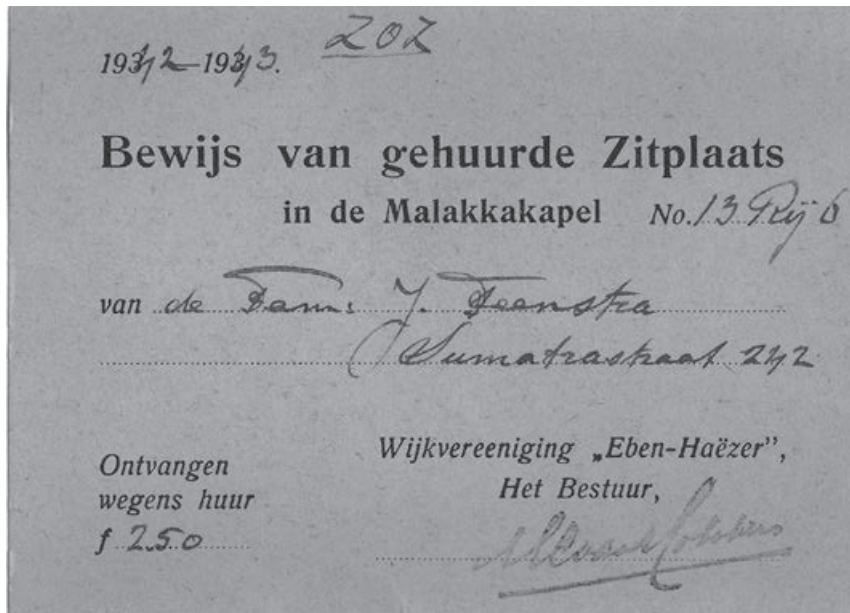 1942-1943. ZOZ
Bewijs van gehuurde Zitplaats
in de Malakkakapel No. 13 Rij 6
van de Fam: J. Feenstra
Sumatrastraat 242
Ontvangen
wegens huur
f 2.50
Wijkvereeniging „Eben-Haëzer”,
Het Bestuur,